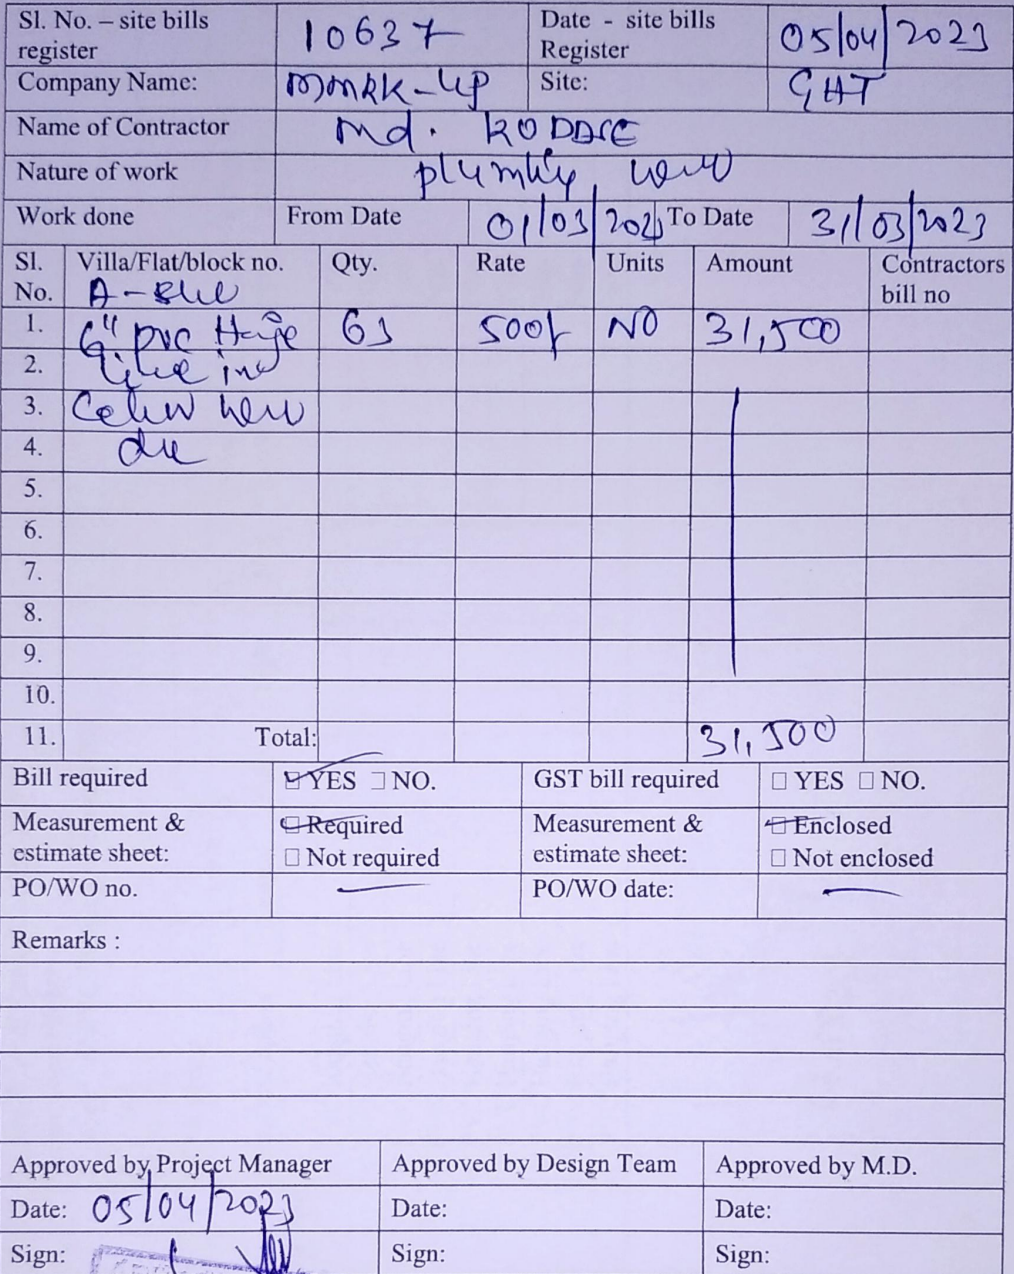 Sl. No. – site bills register 10637 Date - site bills Register 05/04/2023
Company Name: MMRK-LLP Site: GHT
Name of Contractor Md.
Nature of work
Work done From Date 01/03/2023 To Date 31/03/2023
Sl. No. Villa/Flat/block no. Qty. Rate Units Amount Contractors bill no
A-
1. 6" PVC 63 500/- NO 31,500
2.
3.
4.
5.
6.
7.
8.
9.
10.
11. Total: 31,500
Bill required ☑ YES ☐ NO. GST bill required ☐ YES ☐ NO.
Measurement & estimate sheet: ☑ Required ☐ Not required Measurement & estimate sheet: ☑ Enclosed ☐ Not enclosed
PO/WO no. — PO/WO date: —
Remarks :
Approved by Project Manager Approved by Design Team Approved by M.D.
Date: 05/04/2023 Date: Date:
Sign: Sign: Sign: